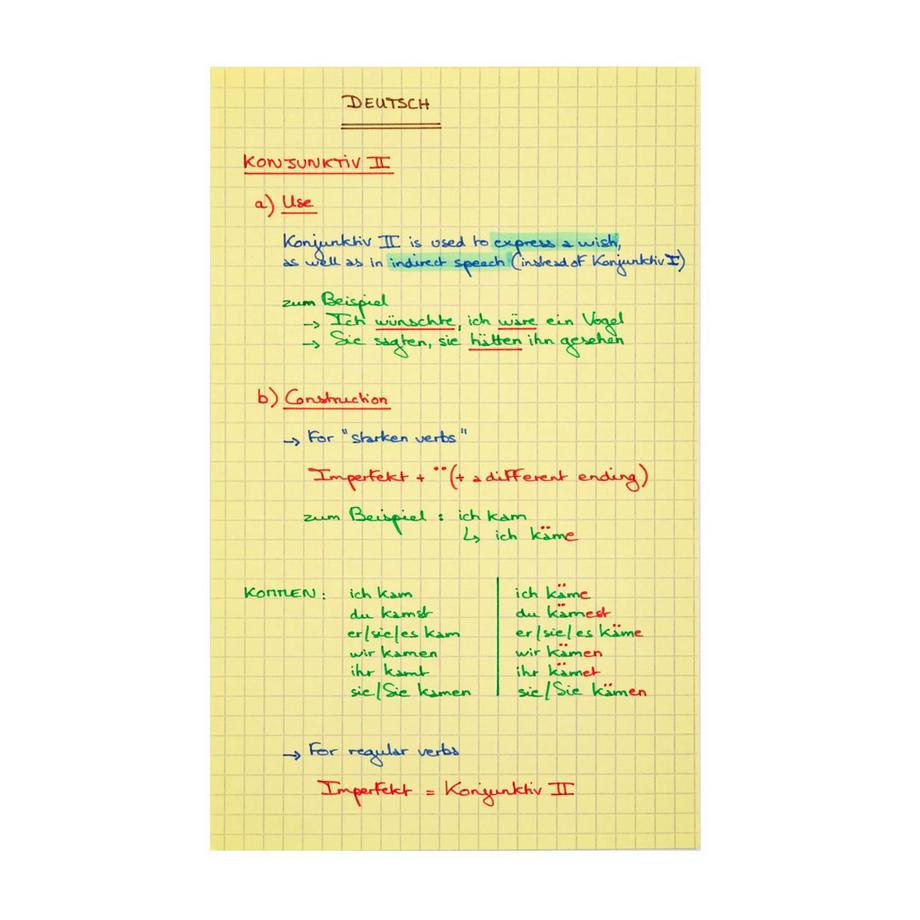 DEUTSCH
KONJUNKTIV II
a) Use
Konjunktiv II is used to express a wish,
as well as in indirect speech (instead of Konjunktiv I)
zum Beispiel
→ Ich wünschte, ich wäre ein Vogel
→ Sie sagten, sie hätten ihn gesehen
b) Construction
→ For "starken verbs"
Imperfekt + ¨ (+ a different ending)
zum Beispiel : ich kam
↳ ich käme
KOMMEN : ich kam | ich käme
du kamst | du kämest
er/sie/es kam | er/sie/es käme
wir kamen | wir kämen
ihr kamt | ihr kämet
sie/Sie kamen | sie/Sie kämen
→ For regular verbs
Imperfekt = Konjunktiv II